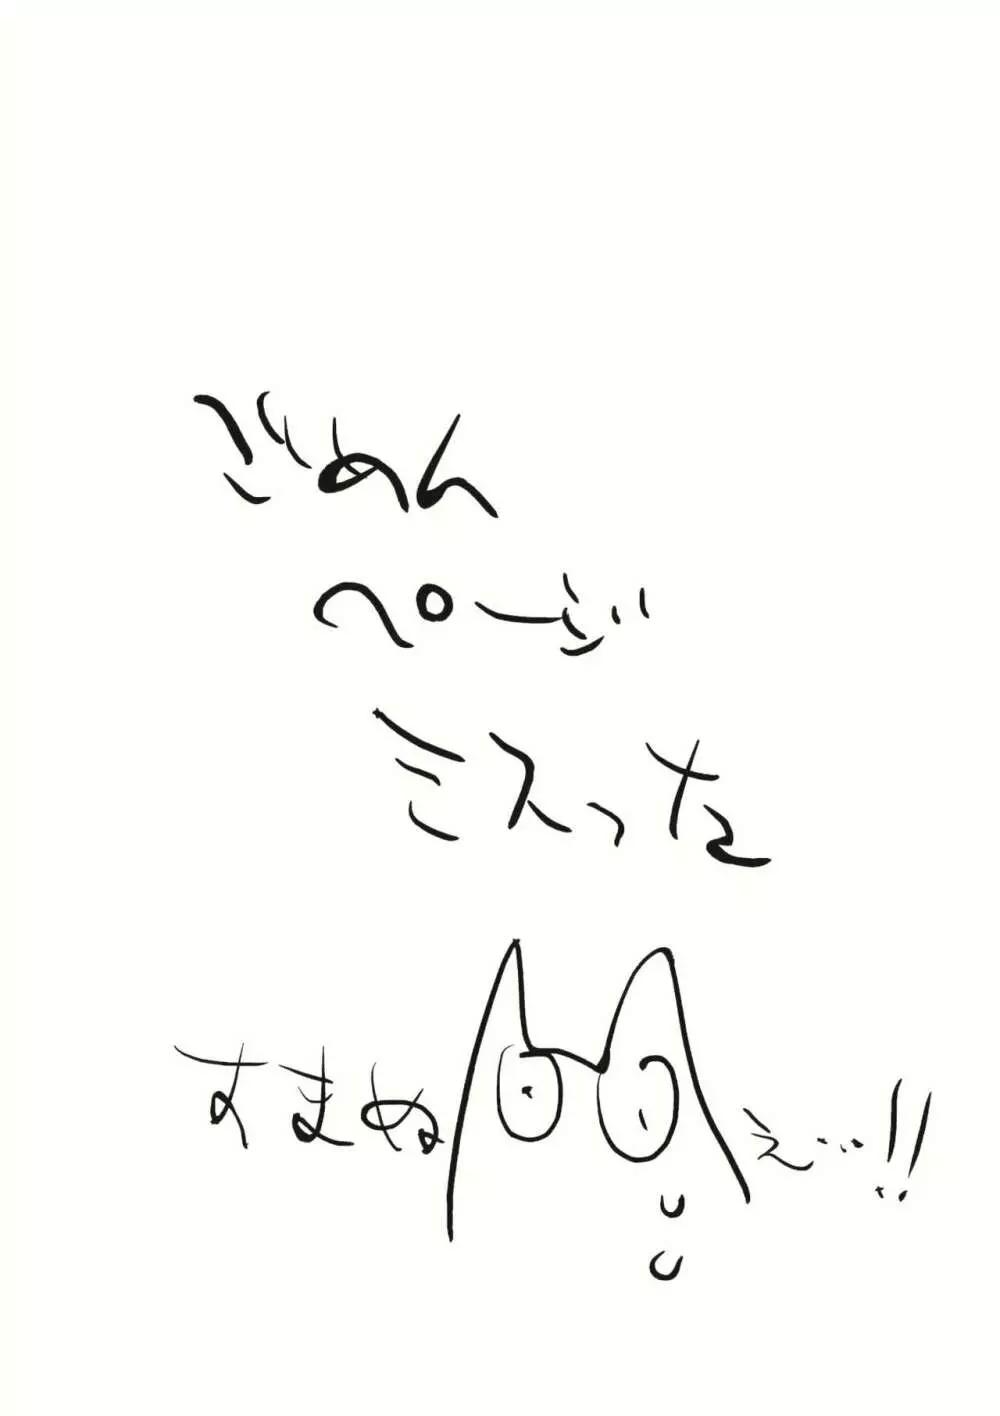 ごめん
ページ
ミスった
すまぬえ…!!